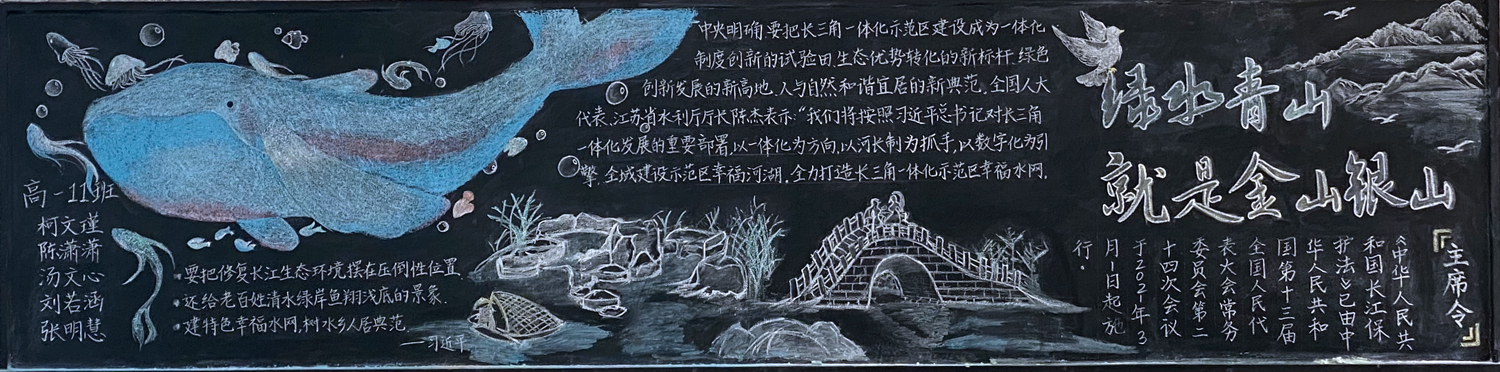 中央明确,要把长三角一体化示范区建设成为一体化
制度创新的试验田,生态优势转化的新标杆,绿色
创新发展的新高地,人与自然和谐宜居的新典范。全国人大
代表、江苏省水利厅厅长陈杰表示:“我们将按照习近平总书记对长三角
一体化发展的重要部署,以一体化为方向,以河长制为抓手,以数字化为引
擎,全域建设示范区幸福河湖,全力打造长三角一体化示范区幸福水网。
绿水青山
就是金山银山
高一11班
柯文瑾
陈潇潇
汤文心
刘若涵
张明慧
·要把修复长江生态环境摆在压倒性位置
·还给老百姓清水绿岸鱼翔浅底的景象.
·建特色幸福水网,树水乡人居典范.
——习近平
『主席令』
《中华人民共
和国长江保
护法》已由中
华人民共和
国第十三届
全国人民代
表大会常务
委员会第二
十四次会议
于2021年3
月1日起施
行。